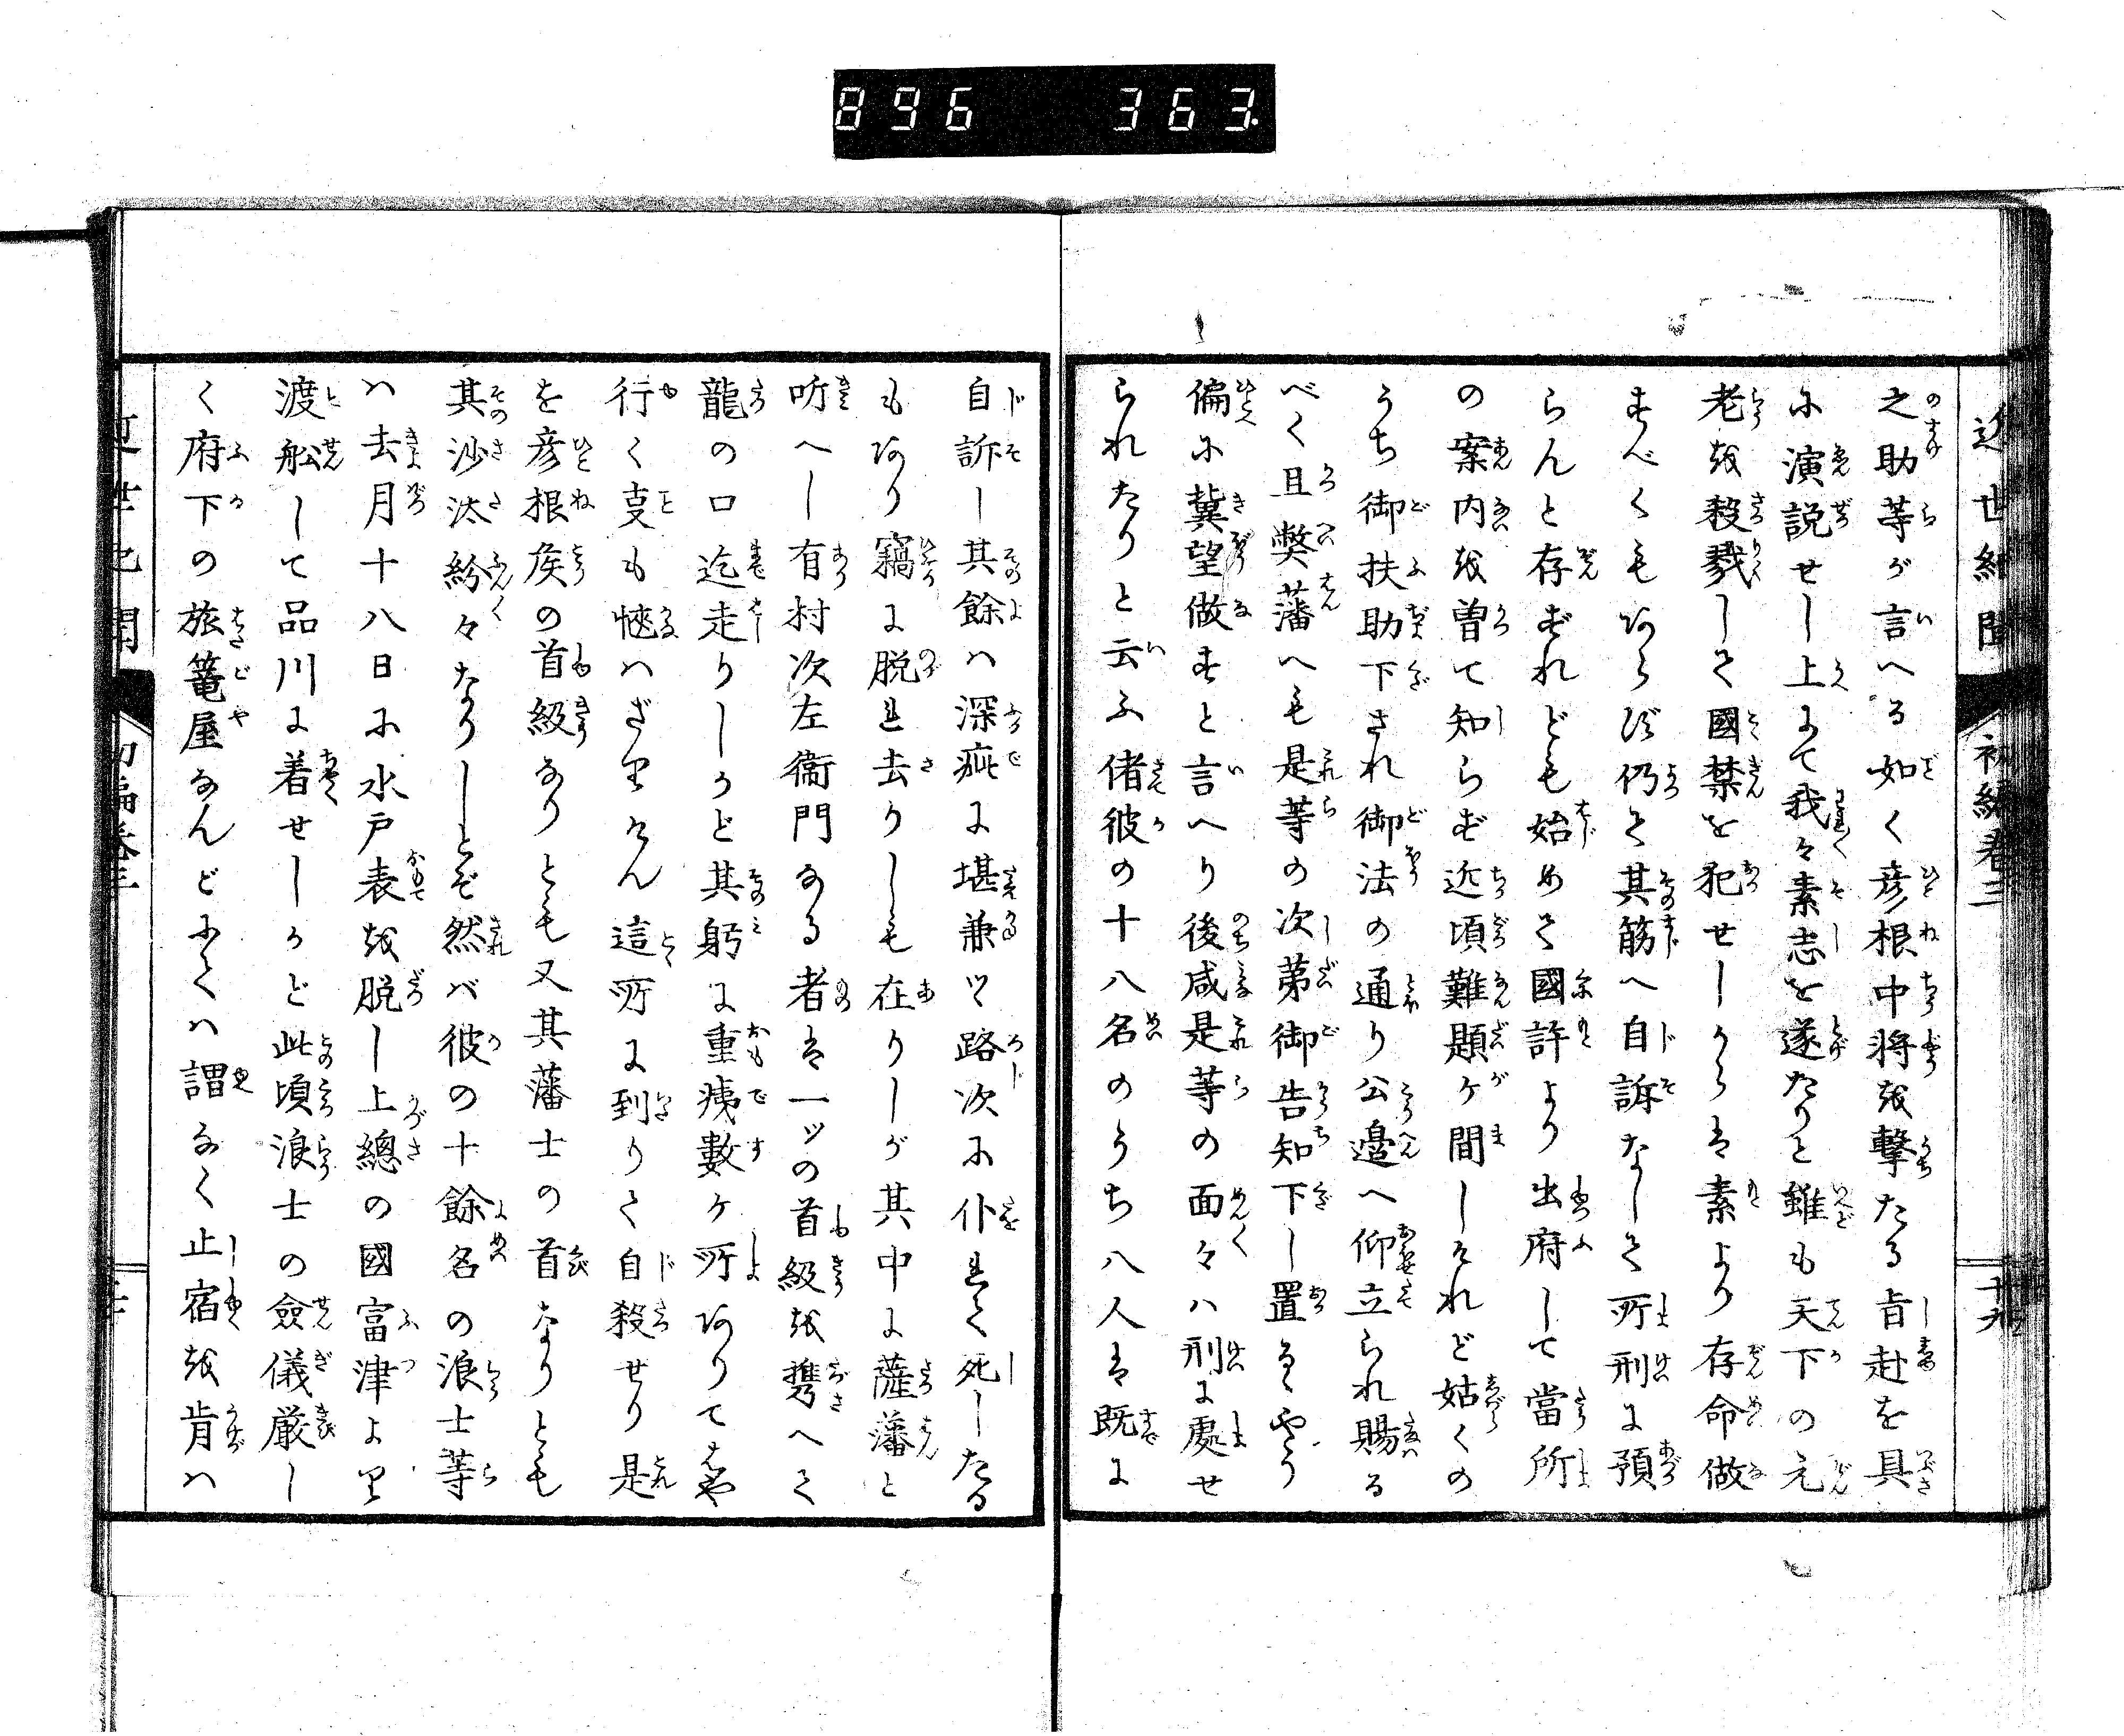 896 363.
近世紀聞 初編巻三 十九
之助等が言へる如く彦根中将を撃たる旨赴を具
に演説せし上にて我々素志を遂たりと雖も天下の元
老を殺戮して國禁を犯せしからは素より存命做
すべくもあらず仍て其筋へ自訴なして所刑に預
らんと存ずれども始めて國許より出府して當所
の案内を曽て知らず近頃難題ヶ間しけれど姑くの
うち御扶助下され御法の通り公邉へ仰立られ賜る
べく且弊藩へも是等の次第御告知下し置るゝやう
偏に冀望做すと言へり後咸是等の面々ハ刑に處せ
られたりと云ふ偖彼の十八名のうち八人は既に
自訴し其餘ハ深疵に堪兼て路次に仆れて死したる
もあり竊に脱れ去りしも在りしが其中に薩藩と
听へし有村次左衞門なる者は一ッの首級を携へて
龍の口迄走りしかど其躬に重痍數ヶ所ありてはや
行く叓も愜はざりけん這所に到りて自殺せり是
を彦根矦の首級なりとも又其藩士の首なりとも
其沙汰紛々なりしとぞ然バ彼の十餘名の浪士等
ハ去月十八日に水戸表を脱し上總の國富津より
渡舩して品川に着せしかど此頃浪士の僉儀厳し
く府下の旅篭屋なんどにてハ謂なく止宿を肯ハ
近世紀聞 初編巻三